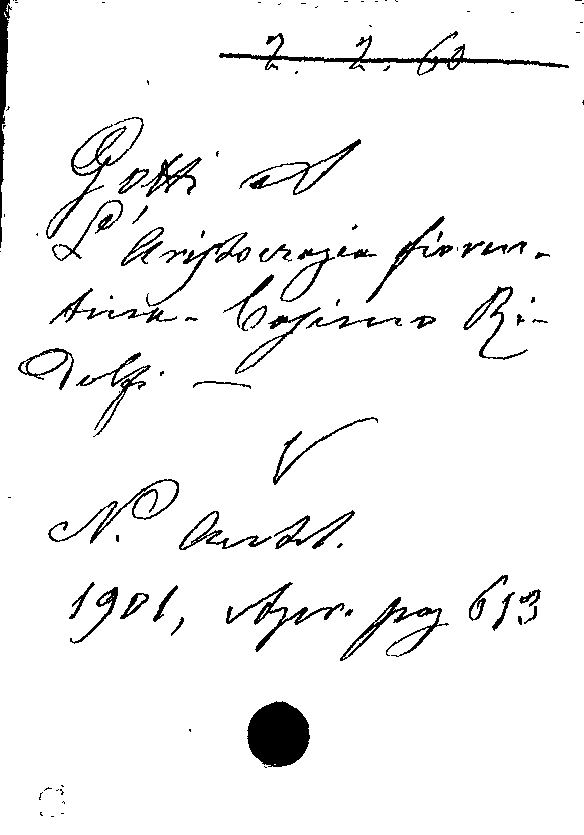 2. 2. 60
Gotti A
L'Aristocrazia fioren-
tina - Cosimo Ri-
dolfi. —
V
N. Antol.
1901, Apr. pag 613